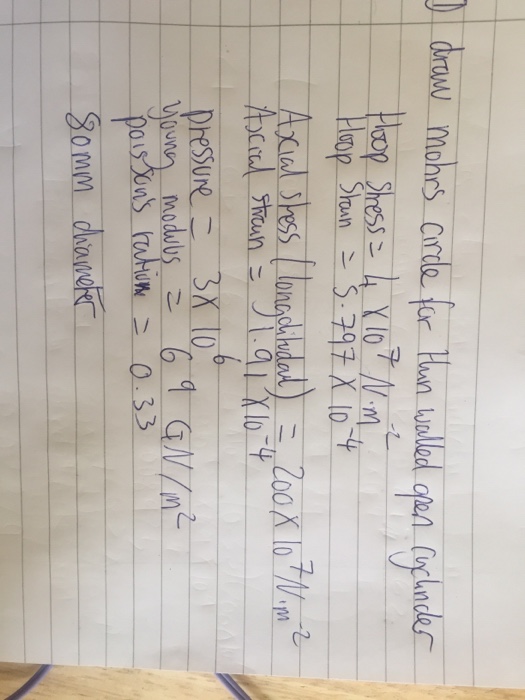 1) draw mohrs circle for thin walled open cyclinder
Hoop Stress = 4 x 10⁷ N.m⁻²
Hoop Strain = 5.797 x 10⁻⁴
Axial stress (longditudal) = 200 x 10⁷ N.m⁻²
Axial strain = -1.91 x 10⁻⁴
pressure = 3 x 10⁶
young modulus = 69 GN/m²
poissons ratio = 0.33
80mm diameter